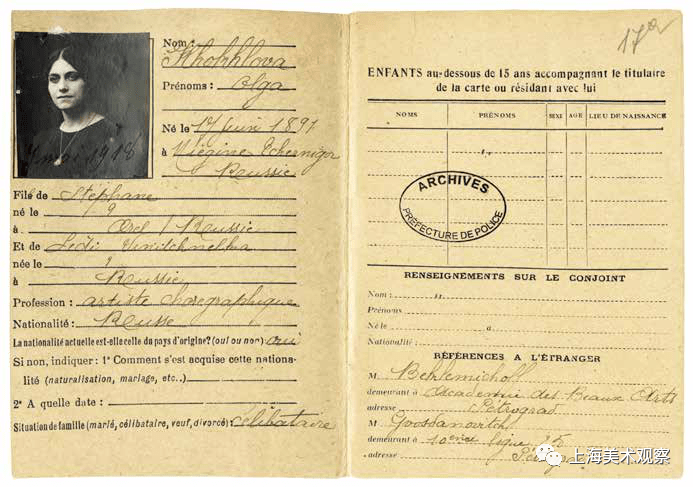 Nom: Khokhlova
Prénoms: Olga
Né le 17 juin 1891
à Niégine Tchernigov
Russie
7 mai 1918
Fils de Stéphane
né le ?
à Orel / Russie
Et de Lidi
née le ?
à Russie
Profession: artiste chorégraphique
Nationalité: Russe
La nationalité actuelle est-elle celle du pays d'origine? (oui ou non) oui
Si non, indiquer: 1° Comment s'est acquise cette nationa-
lité (naturalisation, mariage, etc..)
2° A quelle date:
Situation de famille (marié, célibataire, veuf, divorcé): célibataire
17a
ENFANTS au-dessous de 15 ans accompagnant le titulaire
de la carte ou résidant avec lui
NOMS PRÉNOMS SEXE AGE LIEU DE NAISSANCE
ARCHIVES
PRÉFECTURE DE POLICE
RENSEIGNEMENTS SUR LE CONJOINT
Nom:
Prénoms
Né le à
Nationalité
RÉFÉRENCES A L'ÉTRANGER
M.
demeurant à Academie des Beaux Arts
adresse Pétrograd
M. Goosdanovitch
demeurant à 10ème ligne 15
adresse
上海美术观察